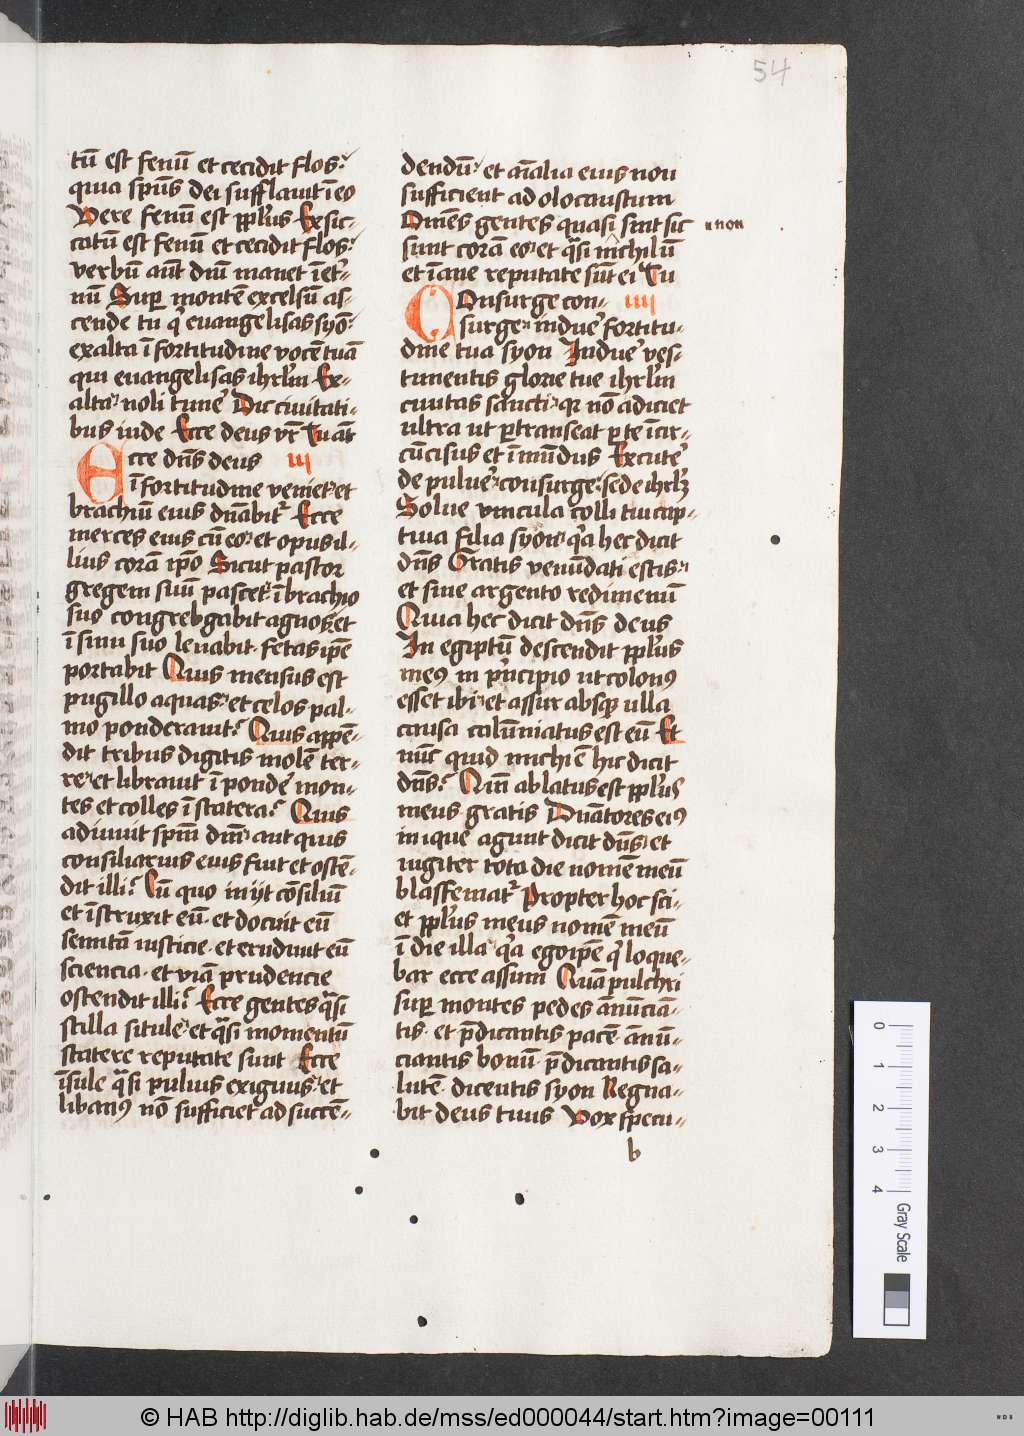 54
tū est fenū et cecidit flos
quia spūs dei sufflauit ī eo
Vere fenū est pplus Exsic-
catū est fenū et cecidit flos
verbū aūt dnī manet ī et'-
nū Sup montē excelsū as-
cende tu q' euangelisas syō
exalta ī fortitudine vocē tuā
qui euangelisas ihrlm Ex-
alta noli time' Dic ciuitati-
bus iude Ecce deus vr̄ Tu āt
Ecce dn̄s deus iii
ī fortitudine veniet et
brachiū eius dn̄abit' Ecce
merces eius cū eo et opus il-
lius corā ip̄o Sicut pastor
gregem suū pascet ī brachio
suo congregabit agnos et
ī sinu suo leuabit fetas ip̄e
portabit Quis mensus est
pugillo aquas et celos pal-
mo ponderauit? Quis appē-
dit tribus digitis molē ter-
re et librauit ī ponde' mon-
tes et colles ī statera? Quis
adiuuit spm̄ dnī aut quis
consiliarius eius fuit et ostē-
dit illi? Cū quo iniit cōsiliū
et īstruxit eū et docuit eū
semitā iusticie et erudiuit eū
sciencia et viā prudencie
ostendit illi? Ecce gentes q̄si
stilla situle et q̄si momentū
statere reputate sunt Ecce
īsule q̄si puluis exiguus et
libanus nō sufficiet ad succē-
dendū et aīalia eius non
sufficient ad olocaustum
Omēs gentes quasi sint sic
non
sunt corā eo et q̄si nichilū
et īane reputate sūt ei Tu
Consurge con- iiii
surge indue' fortitu-
dine tua syon Indue' ves-
timentis glorie tue ihrlm
ciuitas sancti qr nō adiciet
ultra ut ptranseat p te īcir-
cūcisus et īmūdus Excute'
de puluē consurge sede ihrlm
Solue vincula colli tui cap-
tiua filia syon q'a hec dicit
dn̄s Gratis venūdati estis
et sine argento redimeminī
Quia hec dicit dn̄s deus
In egiptū descendit pplus
meus in p'ncipio ut colonus
esset ibi et assur absq ulla
causa calūniatus est eū Et
nūc quid michi ē hic dicit
dn̄s? Qm̄ ablatus est pplus
meus gratis Dn̄atores eius
inique agunt dicit dn̄s et
iugiter tota die nomē meū
blasfemat' Propter hoc sci-
et pplus meus nomē meū
ī die illa q'a ego ip̄e q' loque-
bar ecce assum Quā pulchri
sup montes pedes ānūciā-
tis et p̄dicantis pacē ānū-
ciantis bonū p̄dicantis sa-
lutē dicentis syon Regna-
bit deus tuus Vox specu-
b
0
1
2
3
4
Gray Scale
© HAB http://diglib.hab.de/mss/ed000044/start.htm?image=00111